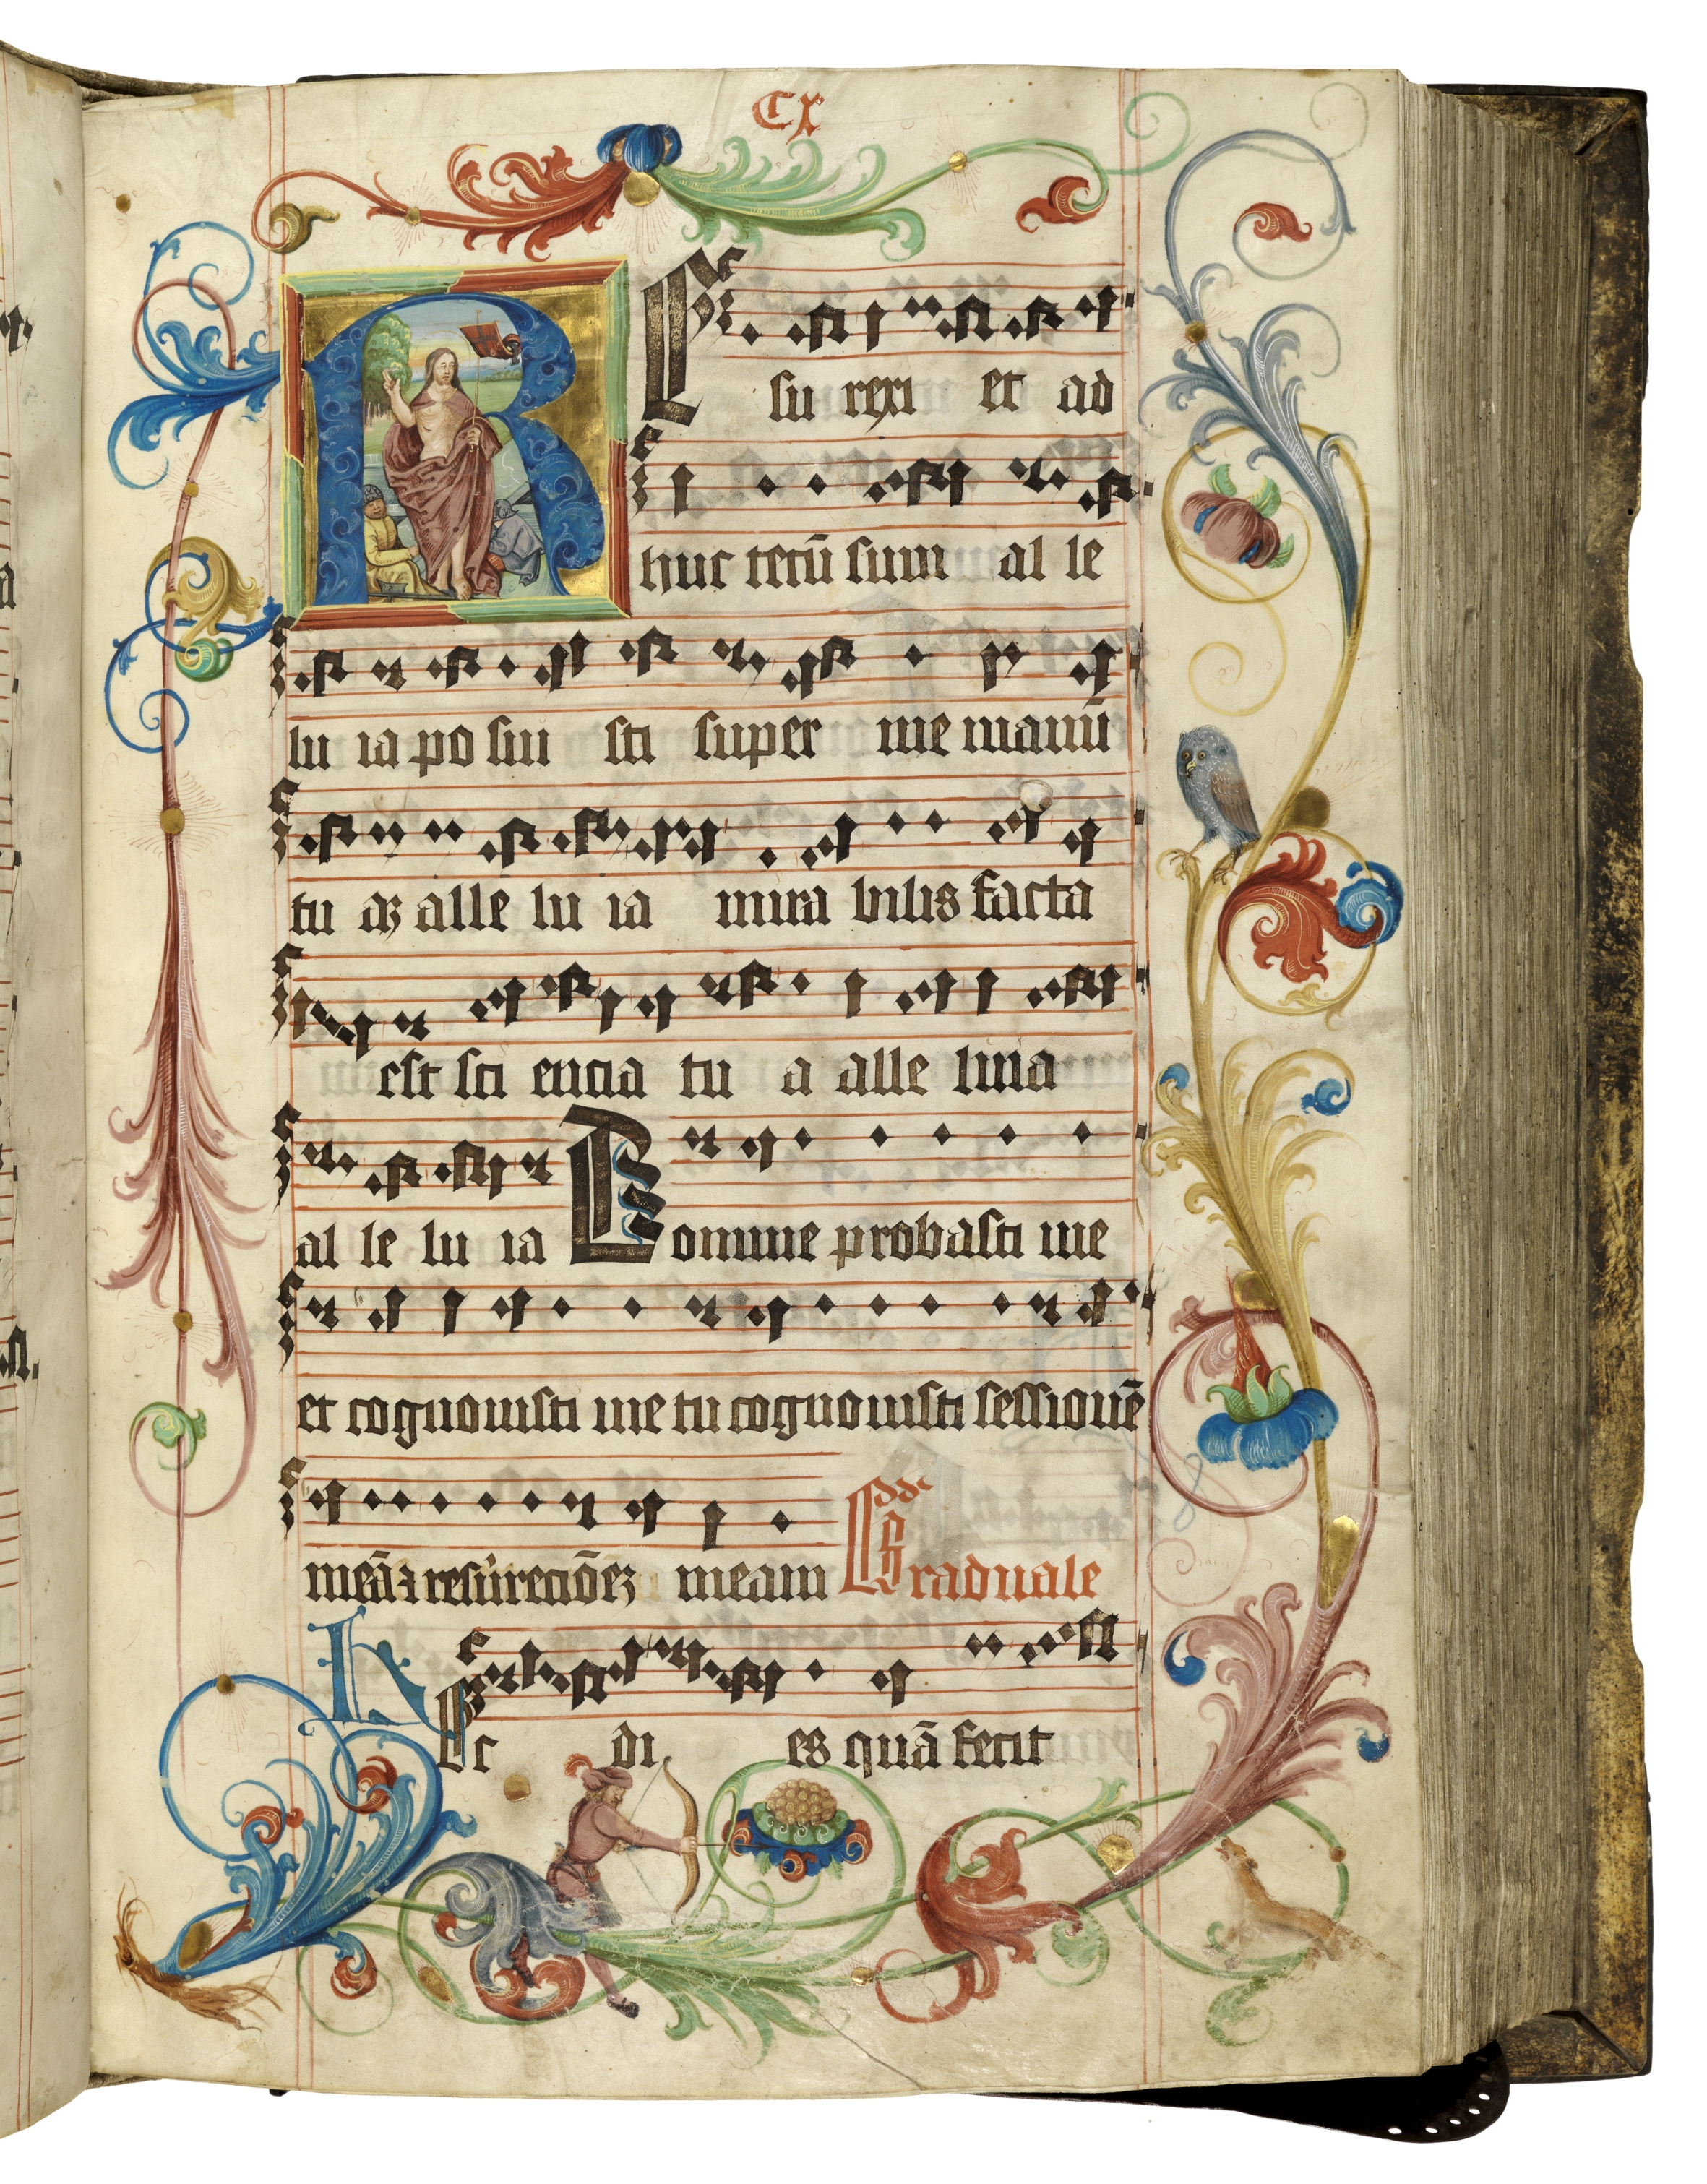 CX
R E su rexi et ad
huc tecū sum al le
lu ia po sui sti super me manū
tu aʒ alle lu ia mira bilis facta
est sci encia tu a alle luia
al le lu ia Domine probasti me
et cognouisti me tu cognouisti sessionē
meā ⁊ resurrectiōeʒ meam Graduale
H Ec di es quā fecit